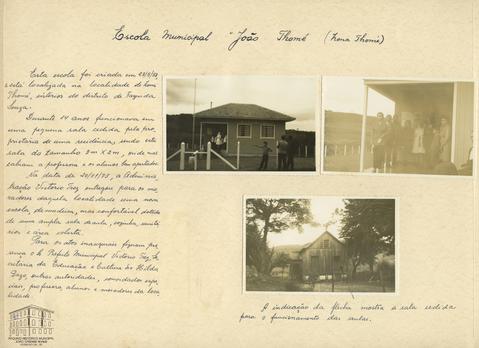 Escola Municipal "João Thomé (Zona Thomé)
Esta escola foi criada em
e está localizada na localidade de Zona
Thomé, interior do distrito de Fazenda
Souza.
Durante 14 anos funcionava em
uma pequena sala cedida pela pro-
prietária de uma residência, sendo esta
sala do tamanho 8m x 2m, onde mal
cabiam a professora e os alunos bem apertados.
Na data de 20/01/75, a Adminis-
tração Victório Trez entregou para os mo-
radores daquela localidade uma nova
escola, de madeira, mas confortável dotada
de uma ampla sala de aula, cozinha, sanitá-
rios e área coberta.
Para os atos inaugurais fizeram pre-
sença o Prefeito Municipal Victório Trez, Se-
cretária da Educação e Cultura Hilda
outras autoridades, convidados espe-
ciais, professora, alunos e moradores da loca-
lidade.
A indicação da flecha mostra a sala cedida
para o funcionamento das aulas.
ARQUIVO HISTÓRICO MUNICIPAL
JOÃO SPADARI ADAMI